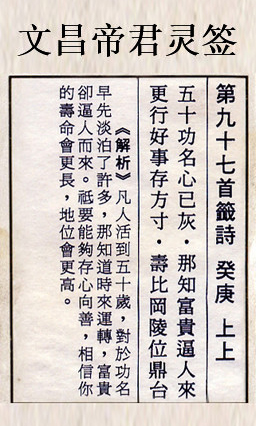 文昌帝君灵签
第九十七首籤詩 癸庚 上上
五十功名心已灰．那知富貴逼人來
更行好事存方寸．壽比岡陵位鼎台
《解析》凡人活到五十歲，對於功名
早先淡泊了許多，那知道時來運轉，富貴
卻逼人而來。祇要能夠存心向善，相信你
的壽命會更長，地位會更高。